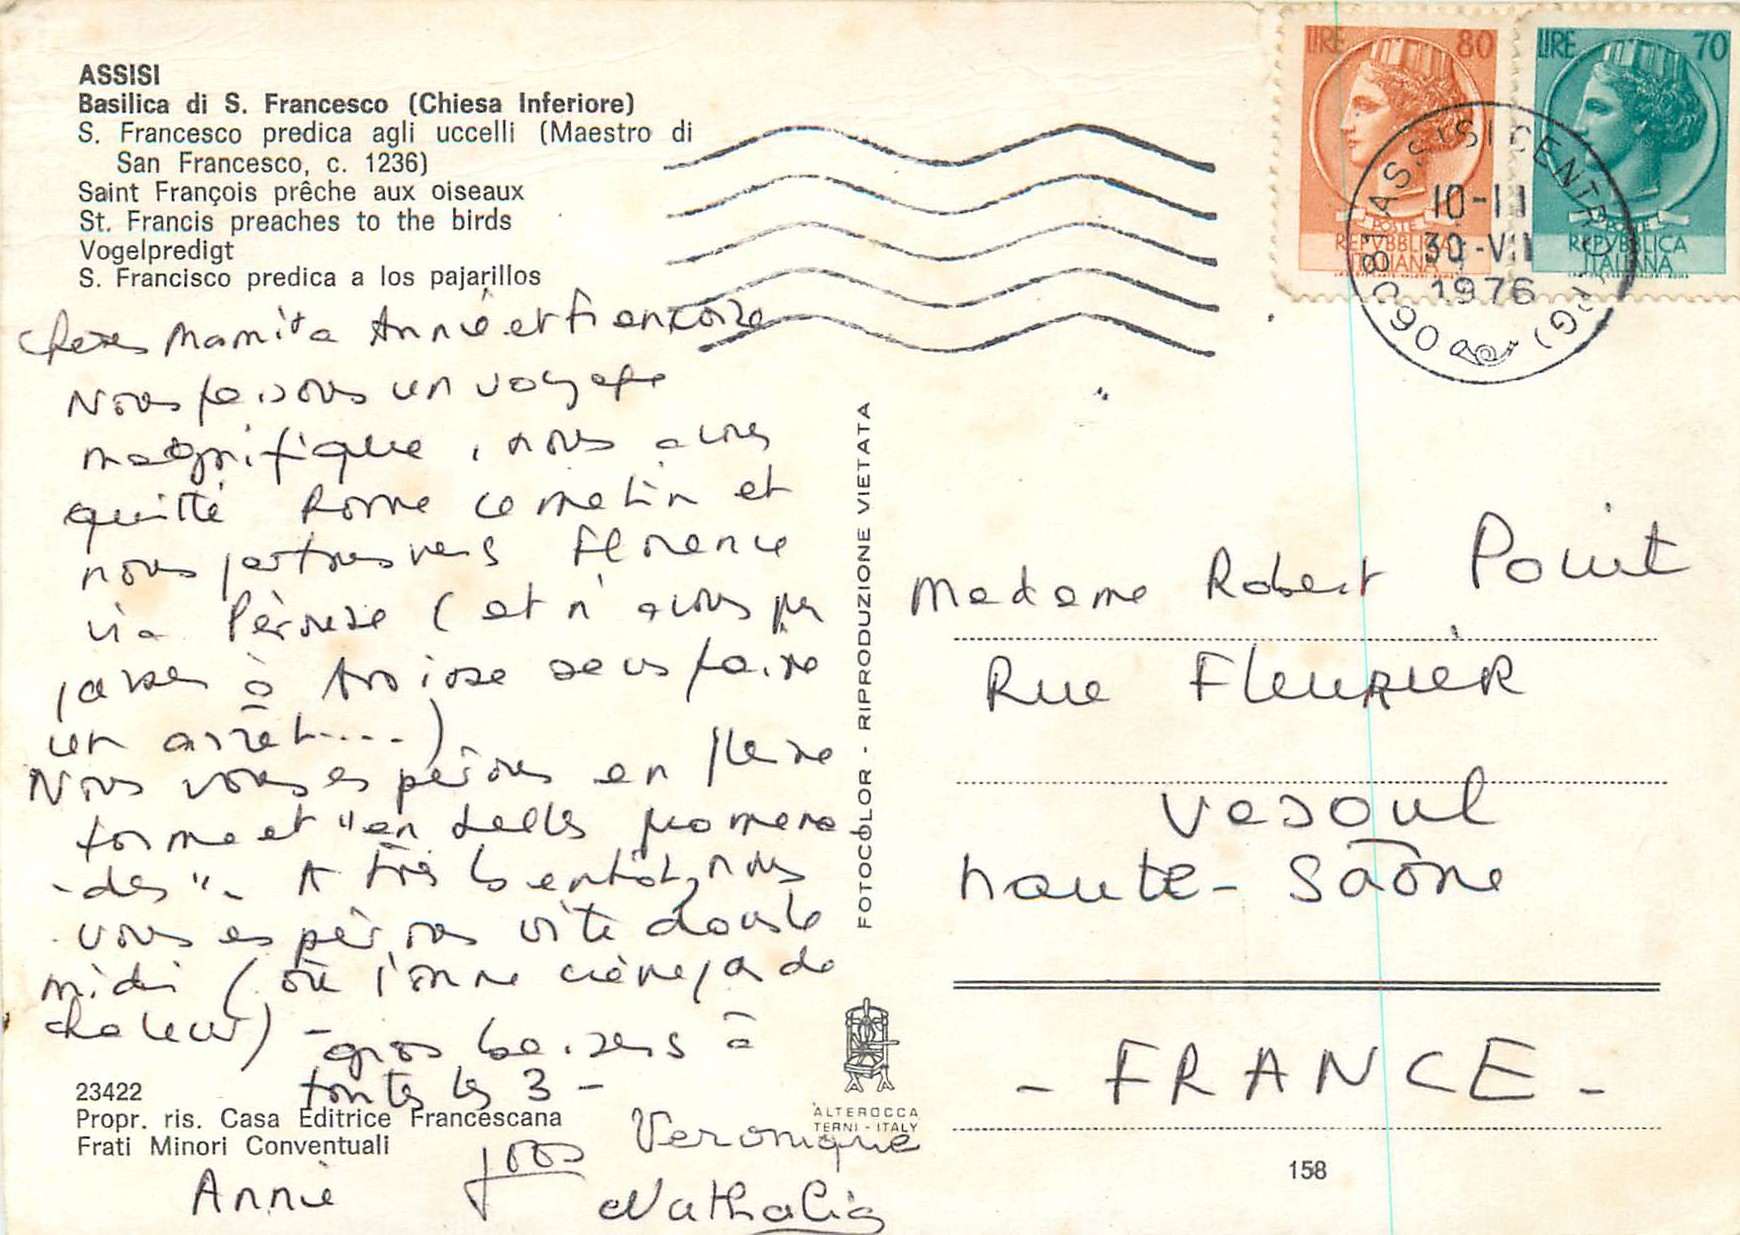 ASSISI
Basilica di S. Francesco (Chiesa Inferiore)
S. Francesco predica agli uccelli (Maestro di
San Francesco, c. 1236)
Saint François prêche aux oiseaux
St. Francis preaches to the birds
Vogelpredigt
S. Francisco predica a los pajarillos
Chères Mamita Annie et Françoise
Nous faisons un voyage
magnifique, nous avons
quitté Rome ce matin et
nous partons vers Florence
via Pérouse (et n'avons pu
passer à Assise sans faire
un arrêt....)
Nous vous espérons en pleine
forme et "en belles promena
-des". A très bientôt, nous
vous espérons vite dans le
midi (où l'on ne crève pas de
chaleur) -
gros baisers à
toutes les 3 -
Annie
Véronique
Nathalie
23422
Propr. ris. Casa Editrice Francescana
Frati Minori Conventuali
FOTOCOLOR - RIPRODUZIONE VIETATA
ALTEROCCA
TERNI - ITALY
LIRE 80
POSTE
REPVBBLICA
ITALIANA
LIRE 70
POSTE
REPVBBLICA
ITALIANA
06081 ASSISI CENTRO (PG)
30-VII
1976
Madame Robert Point
Rue FLEURIER
Vesoul
haute-Saône
- FRANCE -
158